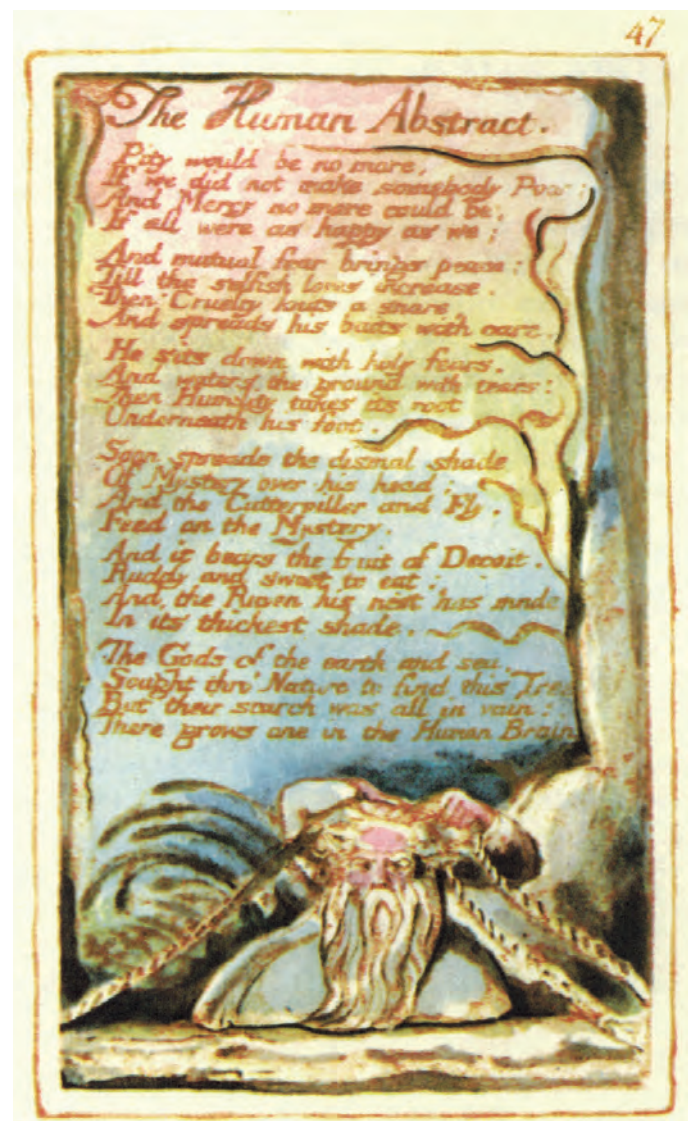 47
The Human Abstract.
Pity would be no more,
If we did not make somebody Poor:
And Mercy no more could be,
If all were as happy as we;
And mutual fear brings peace:
Till the selfish loves increase.
Then Cruelty knits a snare
And spreads his baits with care.
He sits down with holy fears.
And waters the ground with tears:
Then Humility takes its root
Underneath his foot.
Soon spreads the dismal shade
Of Mystery over his head;
And the Catterpiller and Fly.
Feed on the Mystery.
And it bears the fruit of Deceit.
Ruddy and sweet to eat:
And, the Raven his nest has made
In its thickest shade.
The Gods of the earth and sea,
Sought thro' Nature to find this Tree
But their search was all in vain:
There grows one in the Human Brain